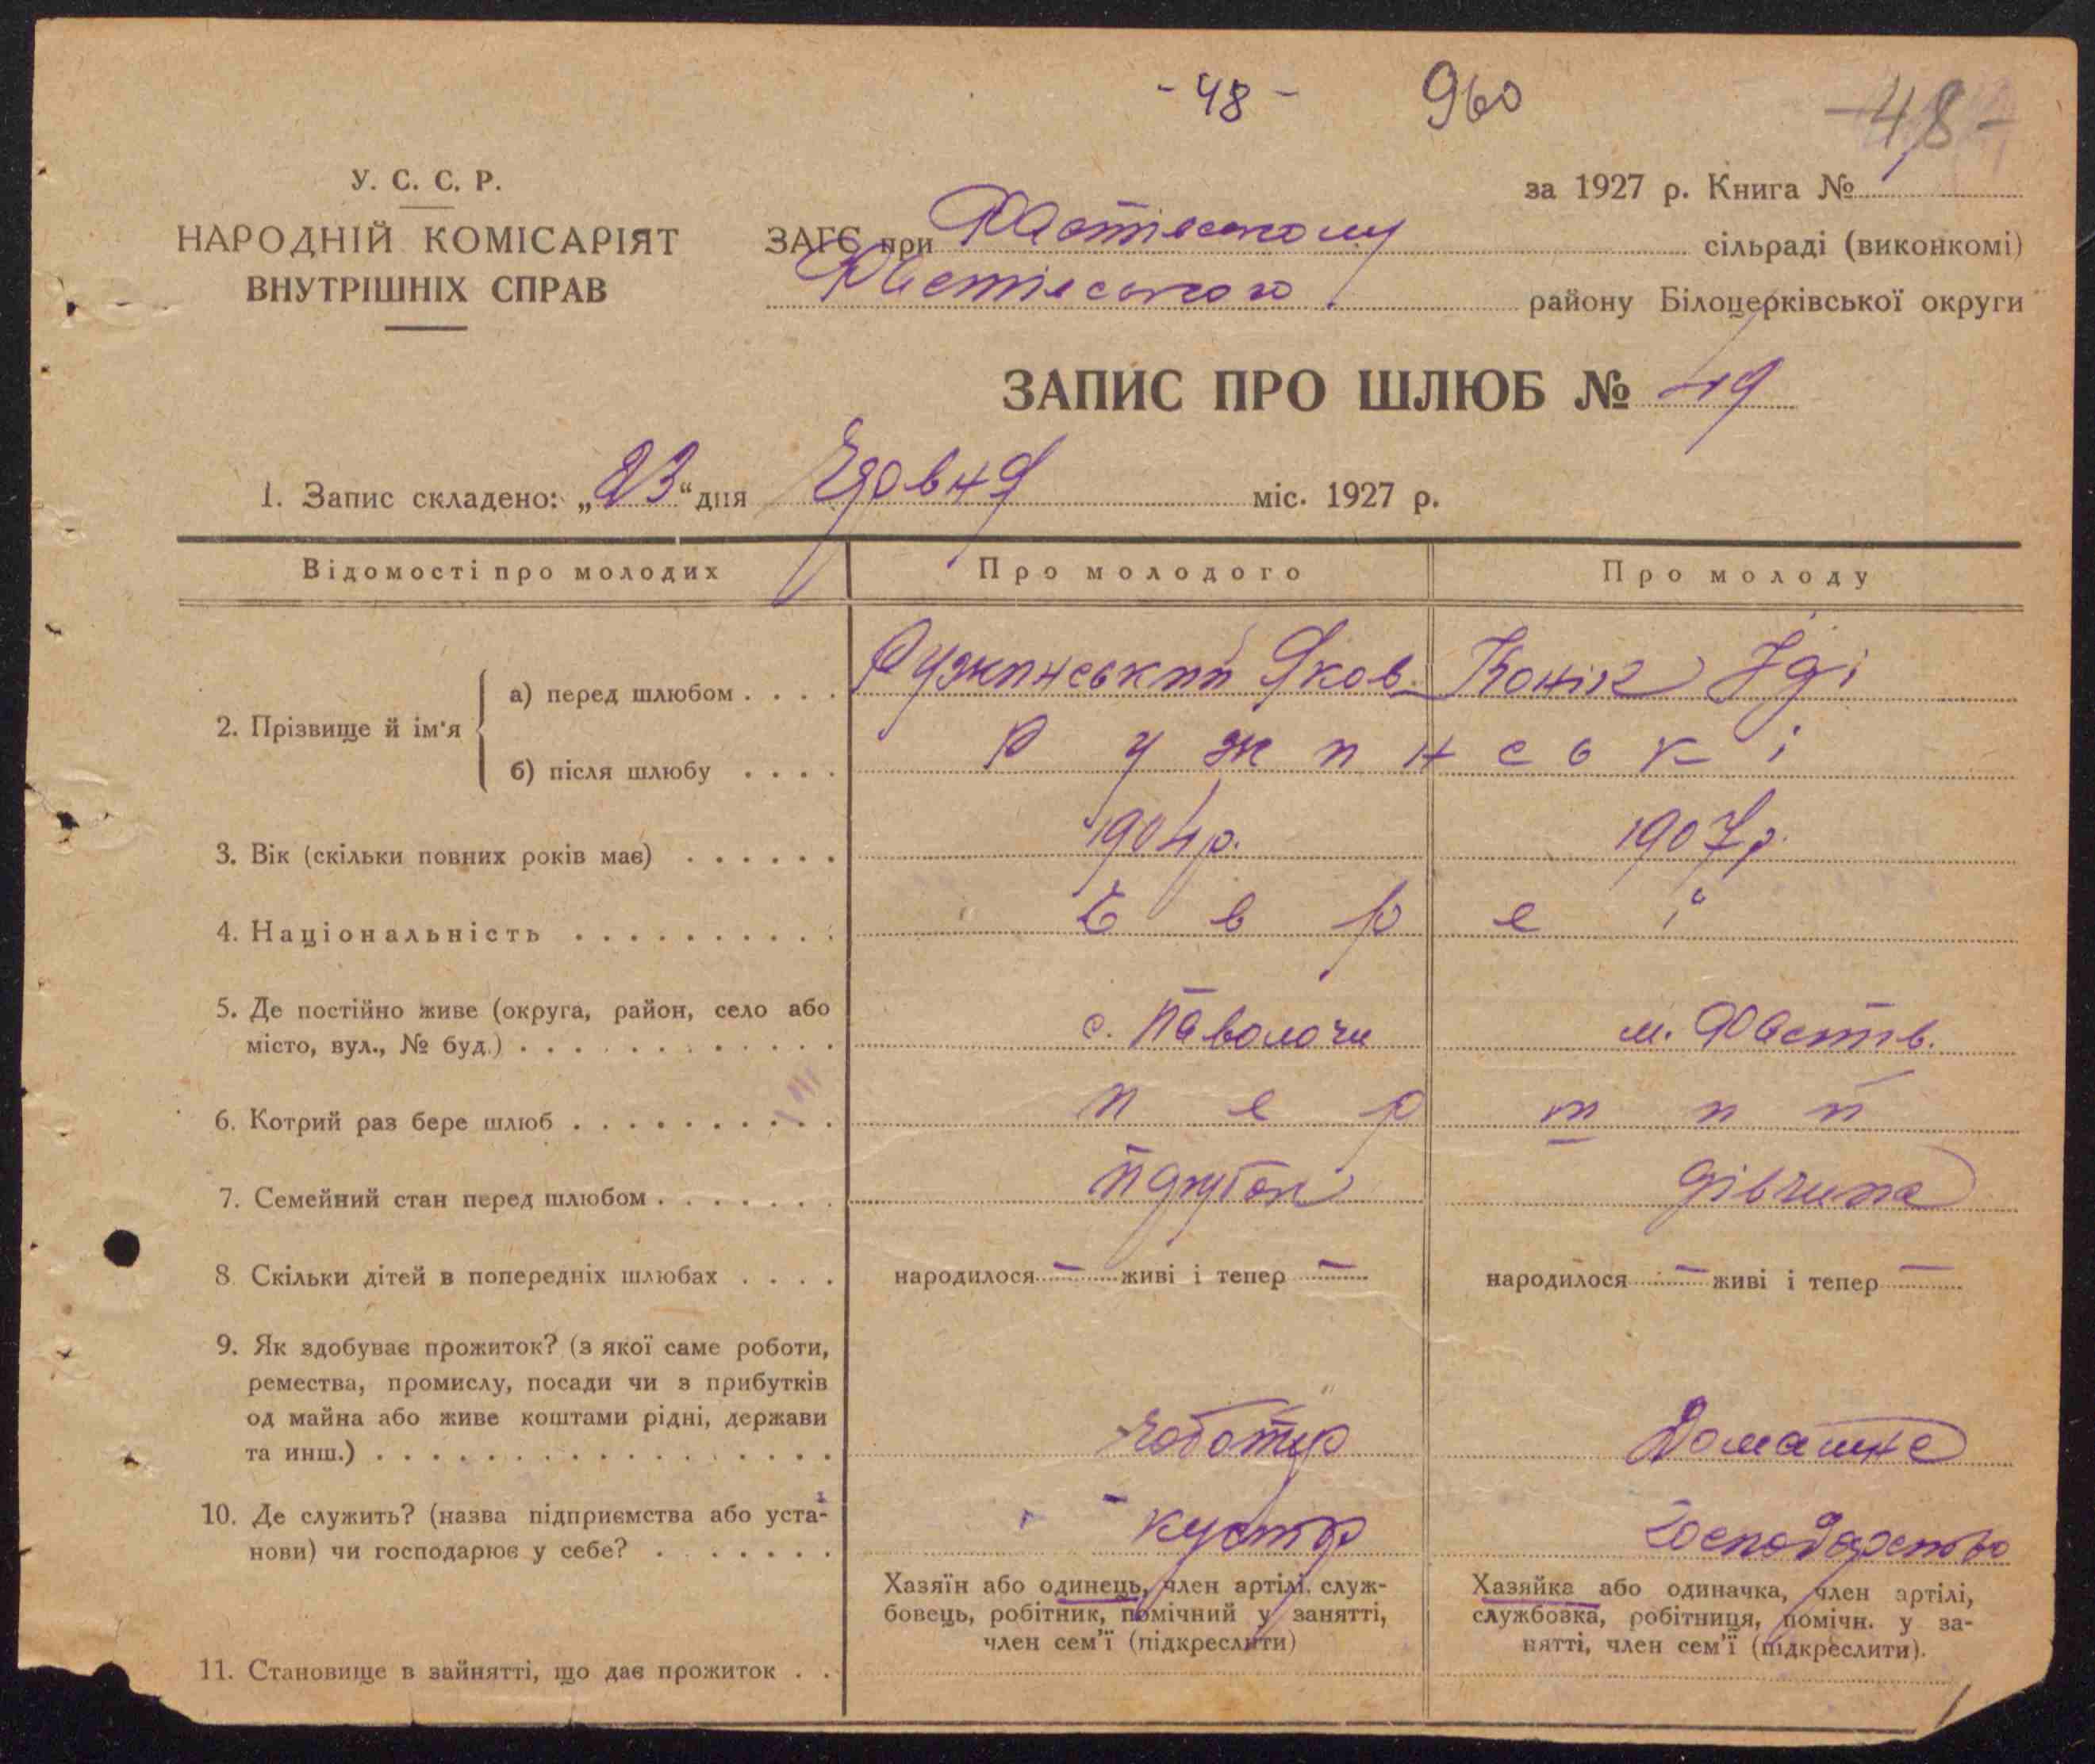 - 48 - 960 - 48 -
У. С. С. Р.
НАРОДНІЙ КОМІСАРІЯТ
ВНУТРІШНІХ СПРАВ
за 1927 р. Книга №
ЗАГС при Фастівському сільраді (виконкомі)
Фастівського району Білоцерківської округи
ЗАПИС ПРО ШЛЮБ № 49
1. Запис складено: „23“ дня міс. 1927 р.
Відомості про молодих Про молодого Про молоду
2. Прізвище й ім'я
а) перед шлюбом . . . . Ружинський Яков Конік Іді
б) після шлюбу . . . . Ружинські
3. Вік (скільки повних років має) . . . . . . 1904 р. 1907 р.
4. Національність . . . . . . . . . . Евреї
5. Де постійно живе (округа, район, село або
місто, вул., № буд.) . . . . . . . . . . . . с. Паволочи м. Фастів.
6. Котрий раз бере шлюб . . . . . . . . . . перший
7. Семейний стан перед шлюбом . . . . . . . дівчина
8. Скільки дітей в попередніх шлюбах . . . . народилося — живі і тепер — народилося — живі і тепер —
9. Як здобуває прожиток? (з якої саме роботи,
ремества, промислу, посади чи з прибутків
од майна або живе коштами рідні, держави
та инш.) . . . . . . . . . . . . . . . . . Чоботир Домашнє
10. Де служить? (назва підприємства або уста-
нови) чи господарює у себе? . . . . . . . кустар господарство
Хазяїн або одинець, член артілі, служ-
бовець, робітник, помічний у занятті,
член сем'ї (підкреслити)
Хазяйка або одиначка, член артілі,
службовка, робітниця, помічн. у за-
нятті, член сем'ї (підкреслити).
11. Становище в зайнятті, що дає прожиток . .